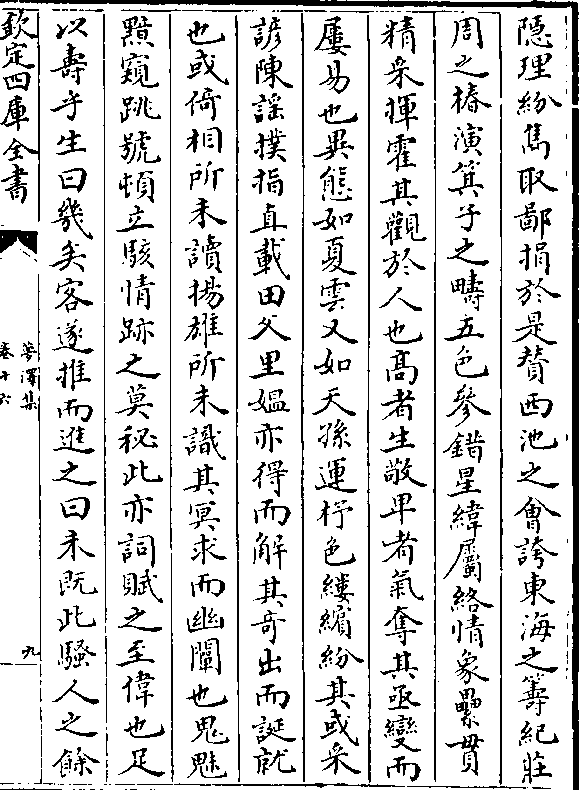 隠理紛雋取鄙捐於是賛西池之會誇東海之籌紀莊
周之椿演箕子之疇五色參錯星緯屬絡情象纍貫
精采揮霍其觀於人也髙者生敬卑者氣奪其亟變而
屢易也異態如夏雲又如天孫運杼色縷繽紛其或采
諺陳謡撲揖直載田父里媼亦得而解其奇出而誕就
也或倚相所未讀揚雄所未識其冥求而幽闡也鬼魅
黙窺跳號頓立駭情跡之莫秘此亦詞賦之至偉也足
以壽乎生曰幾矣客遂推而進之曰未既此騷人之餘
欽定四庫全書
夢澤集
卷十六
九